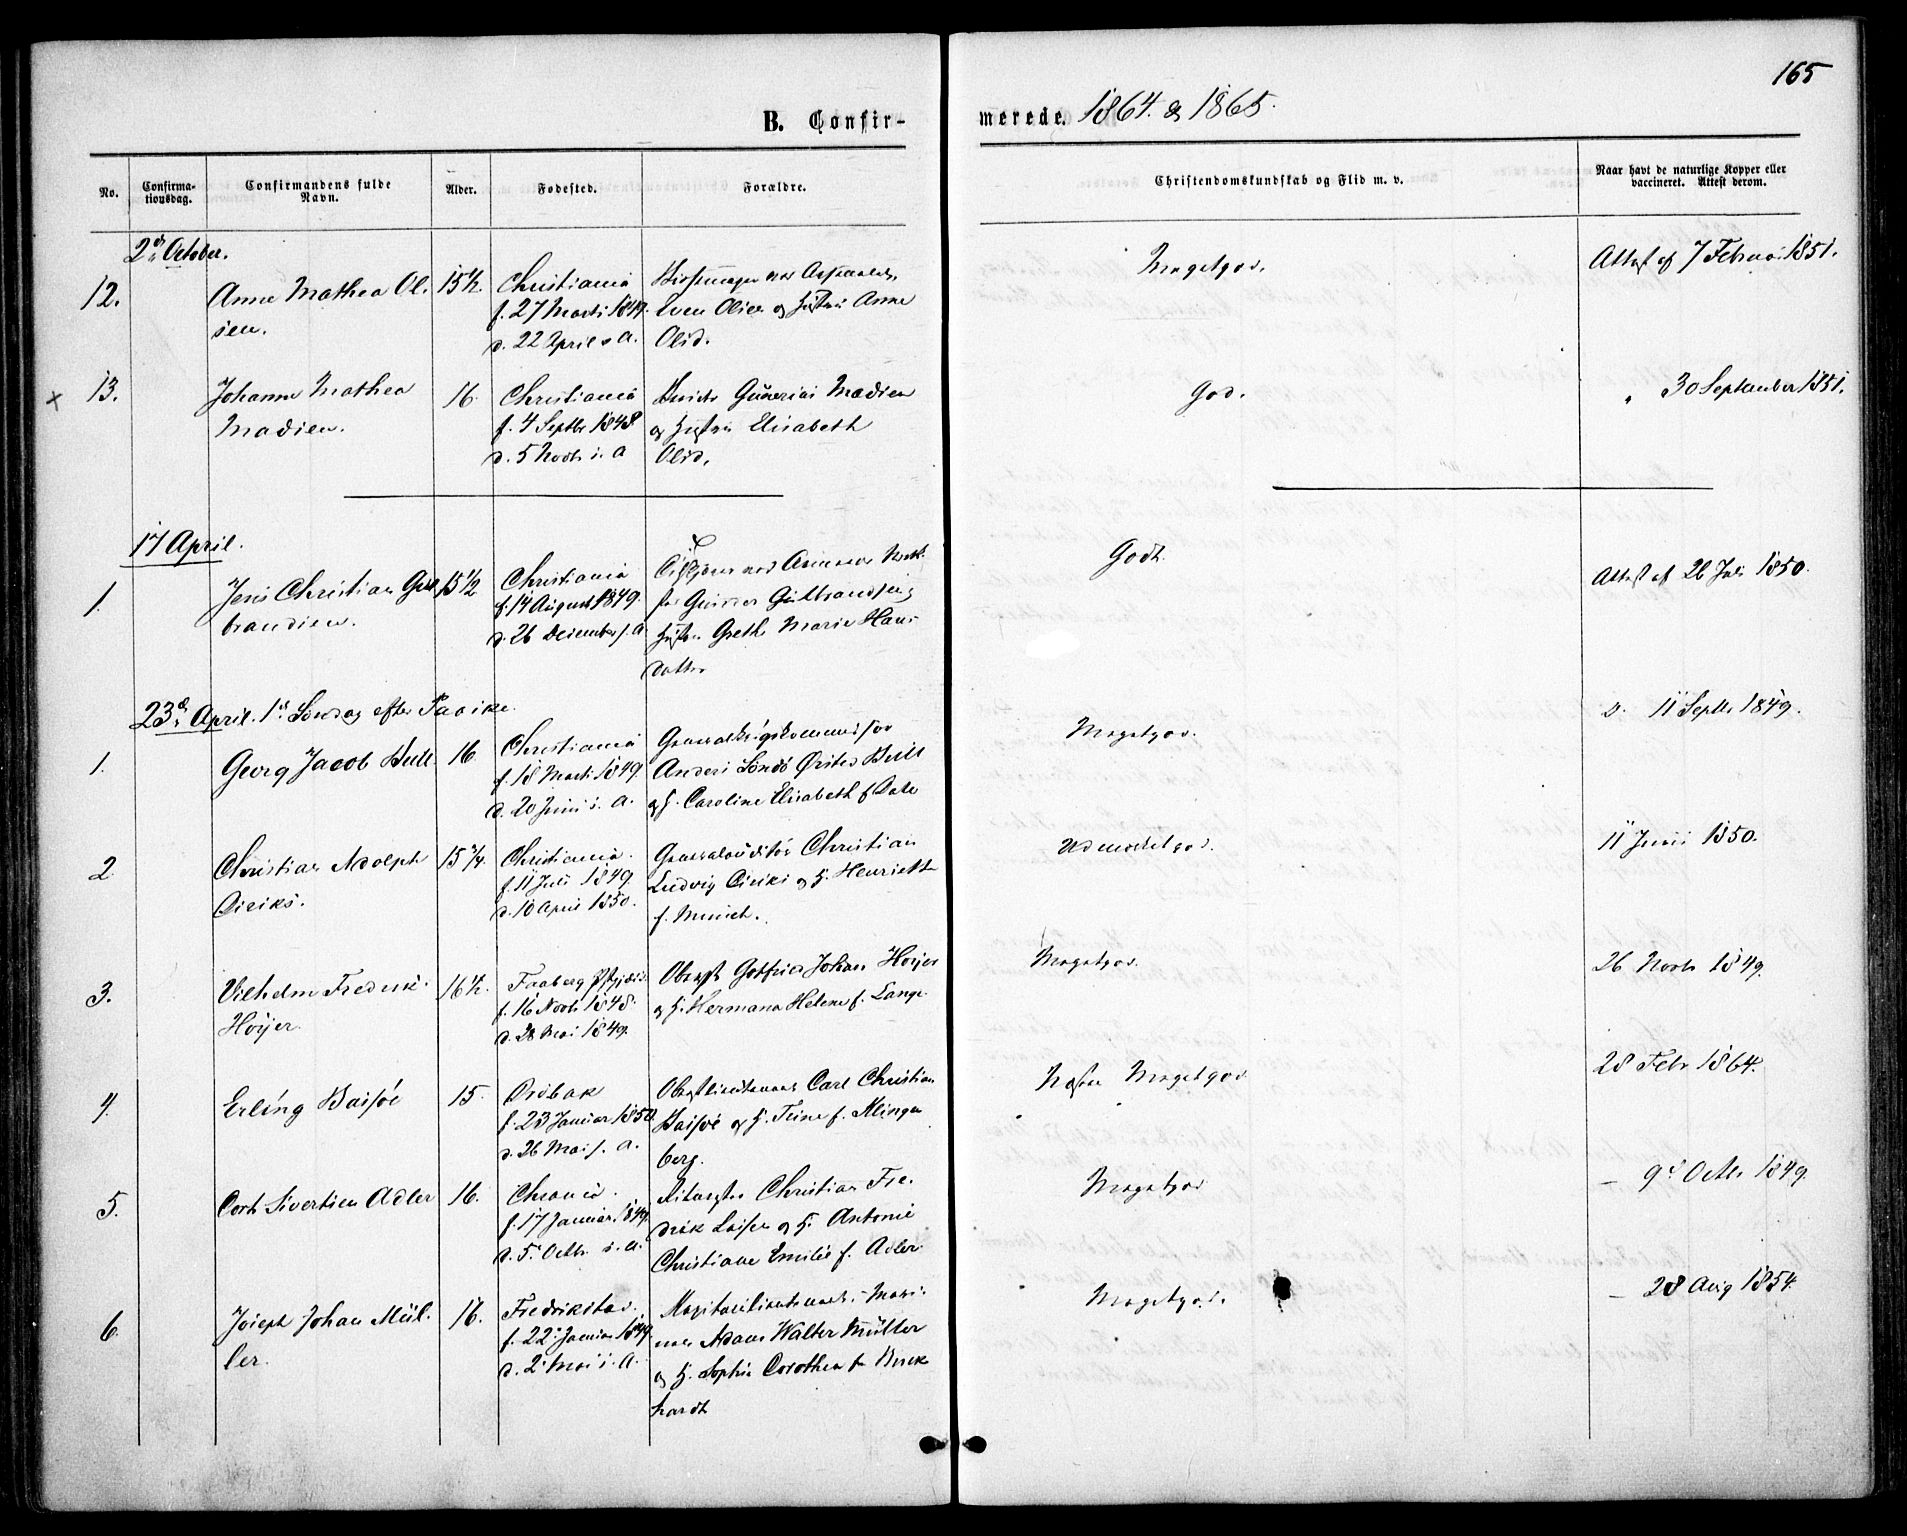 165
B. Confir-
merede. 1864. & 1865.
No.
Confirma-
tionsdag.
Confirmandens fulde
Navn.
Alder.
Fødested.
Forældre.
Christendomskundskab og Flid m. v.
Naar havt de naturlige Kopper eller
vaccineret. Attest derom.
2d October.
12.
Anne Mathea Ol.
sen.
15 1/2.
Christiania
f. 27 Marts 1849.
d. 22 April s. A.
Even Olsen og Hustru Anne
Olsd.
Megetgod.
Attest af 7 Februar 1851.
× 13.
Johanne Mathea
Madsen.
16.
Christiania
f. 4 Septbr 1848
d. 5 Novbr s. A
Madsen
og Hustru Elisabeth
Olsd.
God.
„ 30 September 1851.
17 April.
1.
Jens Christian Gul
brandsen.
15 1/2
Christiania
f. 14 August 1849.
d. 26 December s. A.
Gulbrandsen og
Hustru Grethe Marie Hans-
datter
Godt.
Attest af 26 Juli 1850.
23d April. 1d Søndag efter Paaske.
1.
Georg Jacob Bull
16.
Christiania
f. 18 Marts 1849
d. 20 Juni s. A.
Generalkrigskommissær
Anders Sandø Ørsted Bull
og H. Caroline Elisabeth f. Date
Megetgod.
d. 11 Septbr 1849.
2.
Christian Adolph
Diriks.
15 3/4.
Christiania.
f. 11 Juli 1849
d. 10 April 1850.
Generalauditør Christian
Ludvig Diriks og H. Henriette
f. Munch.
Udmærketgod.
11 Juni 1850.
3.
Vilhelm Frederik
Høyer.
16 1/2.
Faaberg Prstgjæld
f. 16 Novbr 1848.
d. 28 Mai 1849.
Oberst Gotfried Johan Høyer
og H. Hermana Helene f. Lange
Megetgod.
26 Novbr 1849.
4.
Erling Baisøe
15.
Drøbak
f. 23 Januar 1850
d. 26 Mai s. A.
Oberstlieutenant Carl Christian
Baisøe og H. Trine f. Klingen
berg.
Næsten Megetgod
28 Febr 1864.
5.
Cort Sivertsen Adler
16.
Chrania.
f. 17 Januar 1849.
d. 5. Octbr. s. A.
Ritmester Christian Fre.
drik og H. Antonie
Christiane Emilie f. Adler.
Megetgod
— 9d Octbr 1849.
6.
Joseph Johan Mül.
ler.
16.
Fredrikstad.
f. 22 Januar 1849.
d. 2 Mai s. A.
Kapitainlieutenant i Mari-
nen Adam Walter Müller
og H. Sophie Dorothea f. Burk
hardt
Megetgod.
— 28 Aug 1854